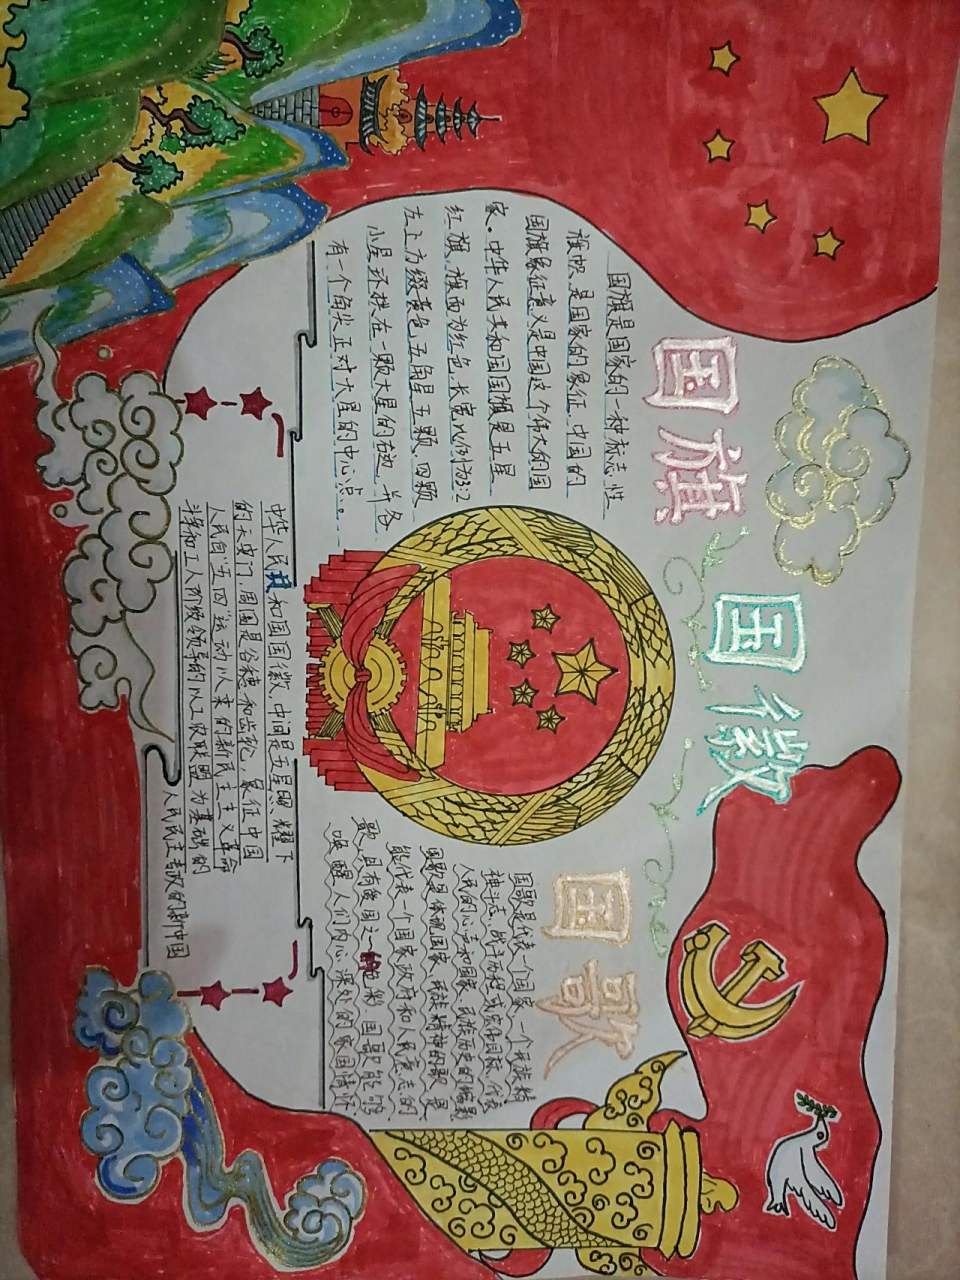 国旗
国徽
国歌
国旗是国家的一种标志性
旗帜,是国家的象征。中国的
国旗象征意义是中国这个伟大的国
家。中华人民共和国国旗是五星
红旗,旗面为红色,长宽比例为3:2
左上方缀黄色五角星五颗,四颗
小星环拱在一颗大星的右边,并各
有一个角尖正对大星的中心点。
中华人民共和国国徽,中间是五星照耀下
的天安门,周围是谷穗和齿轮,象征中国
人民自“五四”运动以来的新民主主义革命
斗争和工人阶级领导的以工农联盟为基础的
人民民主专政的新中国
国歌是代表一个国家、一个民族精
神斗志,战斗历程或宏伟目标,代表
人民的心声和国家、民族历史的缩影
国歌是体现国家、民族精神的歌,是
能代表一个国家政府和人民意志的
歌,具有爱国之一 色彩。国歌能够
唤醒人们内心深处的家国情怀